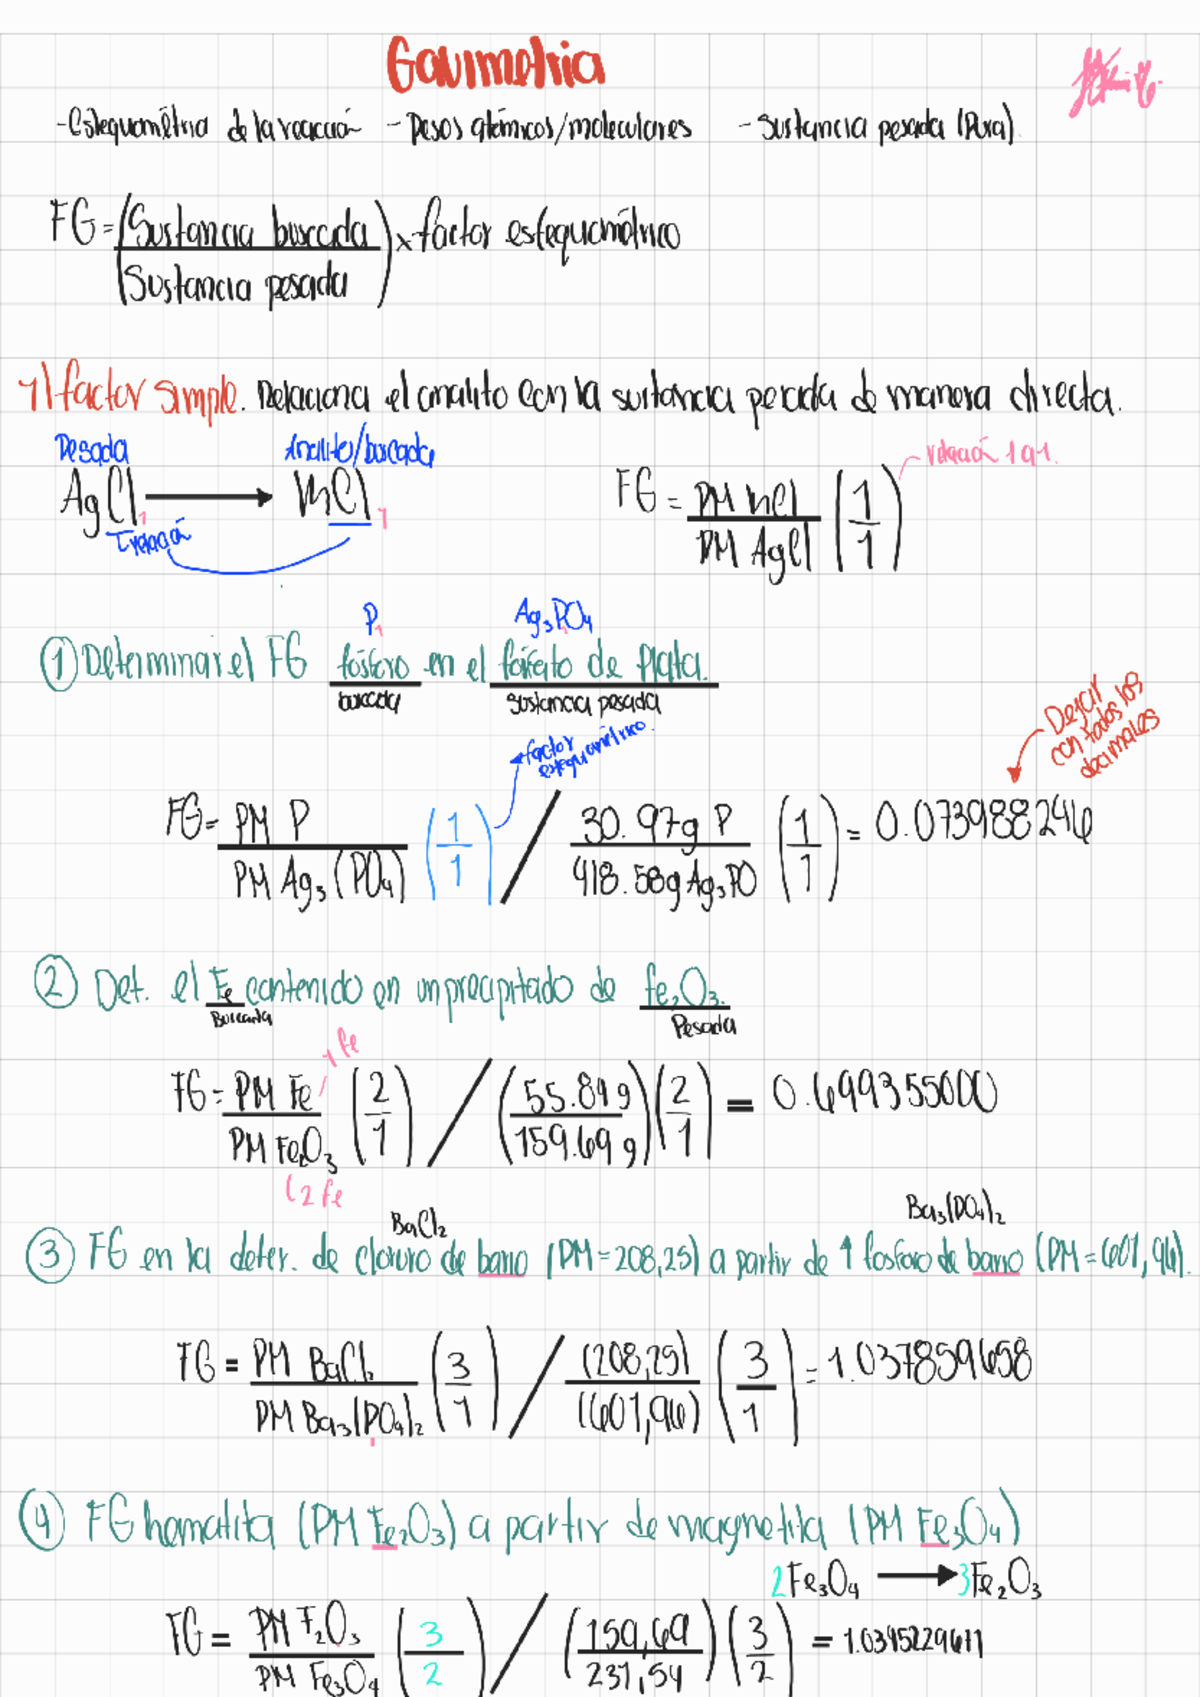 Gavimetria
-Estequiométria de la reacción - Pesos atómicos/moleculares - Sustancia pesada (Pura).
FG = (Sustancia buscada / Sustancia pesada) x factor estequiométrico
1) factor simple. Relaciona el analito con la sustancia pesada de manera directa.
Pesada Analito/buscada
relación 1 a 1.
AgCl 1 → HCl 1
FG = PM HCl / PM AgCl (1/1)
P1 Ag3PO4
① Determinar el FG fósforo en el fosfato de Plata.
buscada sustancia pesada
factor estequiométrico.
Dejar con todos los decimales
FG = PM P / PM Ag3(PO4) (1/1) / 30.97g P / 418.58g Ag3PO (1/1) = 0.073988246
② Det. el Fe contenido en un precipitado de Fe2O3.
Buscada Pesada
1 Fe
FG = PM Fe / PM Fe2O3 (2/1) / (55.84 g / 159.69 g) (2/1) = 0.699355000
2 Fe
BaCl2 Ba3(PO4)2
③ FG en la deter. de cloruro de bario (PM=208,25) a partir de 1 fosforo de bario (PM=601,96).
FG = PM BaCl2 / PM Ba3(PO4)2 (3/1) / (208,25) / (601,96) (3/1) = 1.037859658
④ FG hematita (PM Fe2O3) a partir de magnetita (PM Fe3O4)
2Fe3O4 → 3Fe2O3
FG = PM F2O3 / PM Fe3O4 (3/2) / (159,69 / 231,54) (3/2) = 1.034522961